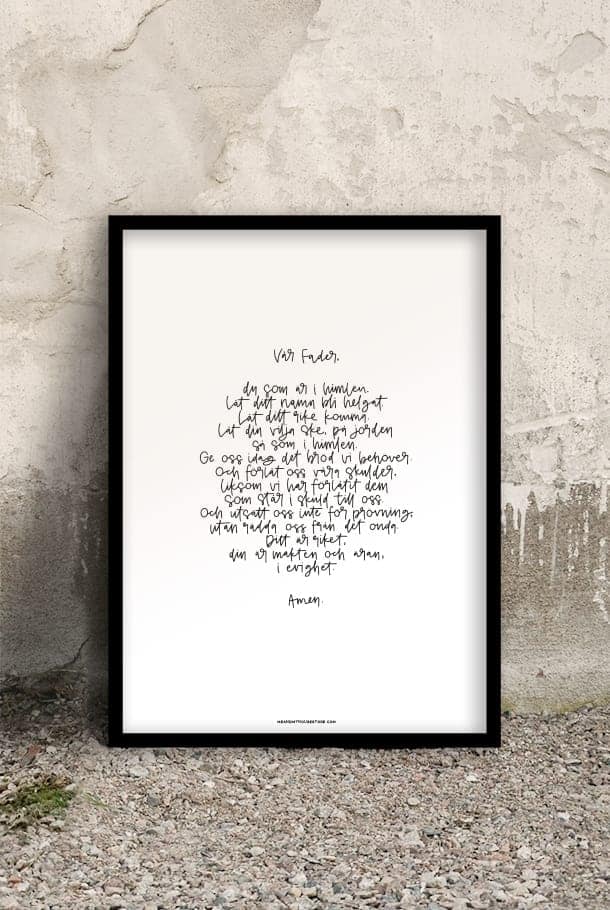 Vår Fader,
du som ar i himlen.
Låt ditt namn bli helgat.
Låt ditt rike komma.
Låt din vilja ske, på jorden
så som i himlen.
Ge oss idag det brod vi behover.
Och forlåt oss våra skulder,
liksom vi har forlåtit dem
som står i skuld till oss.
Och utsatt oss inte for provning,
utan radda oss från det onda.
Ditt ar riket,
din ar makten och aran,
i evighet.
Amen.